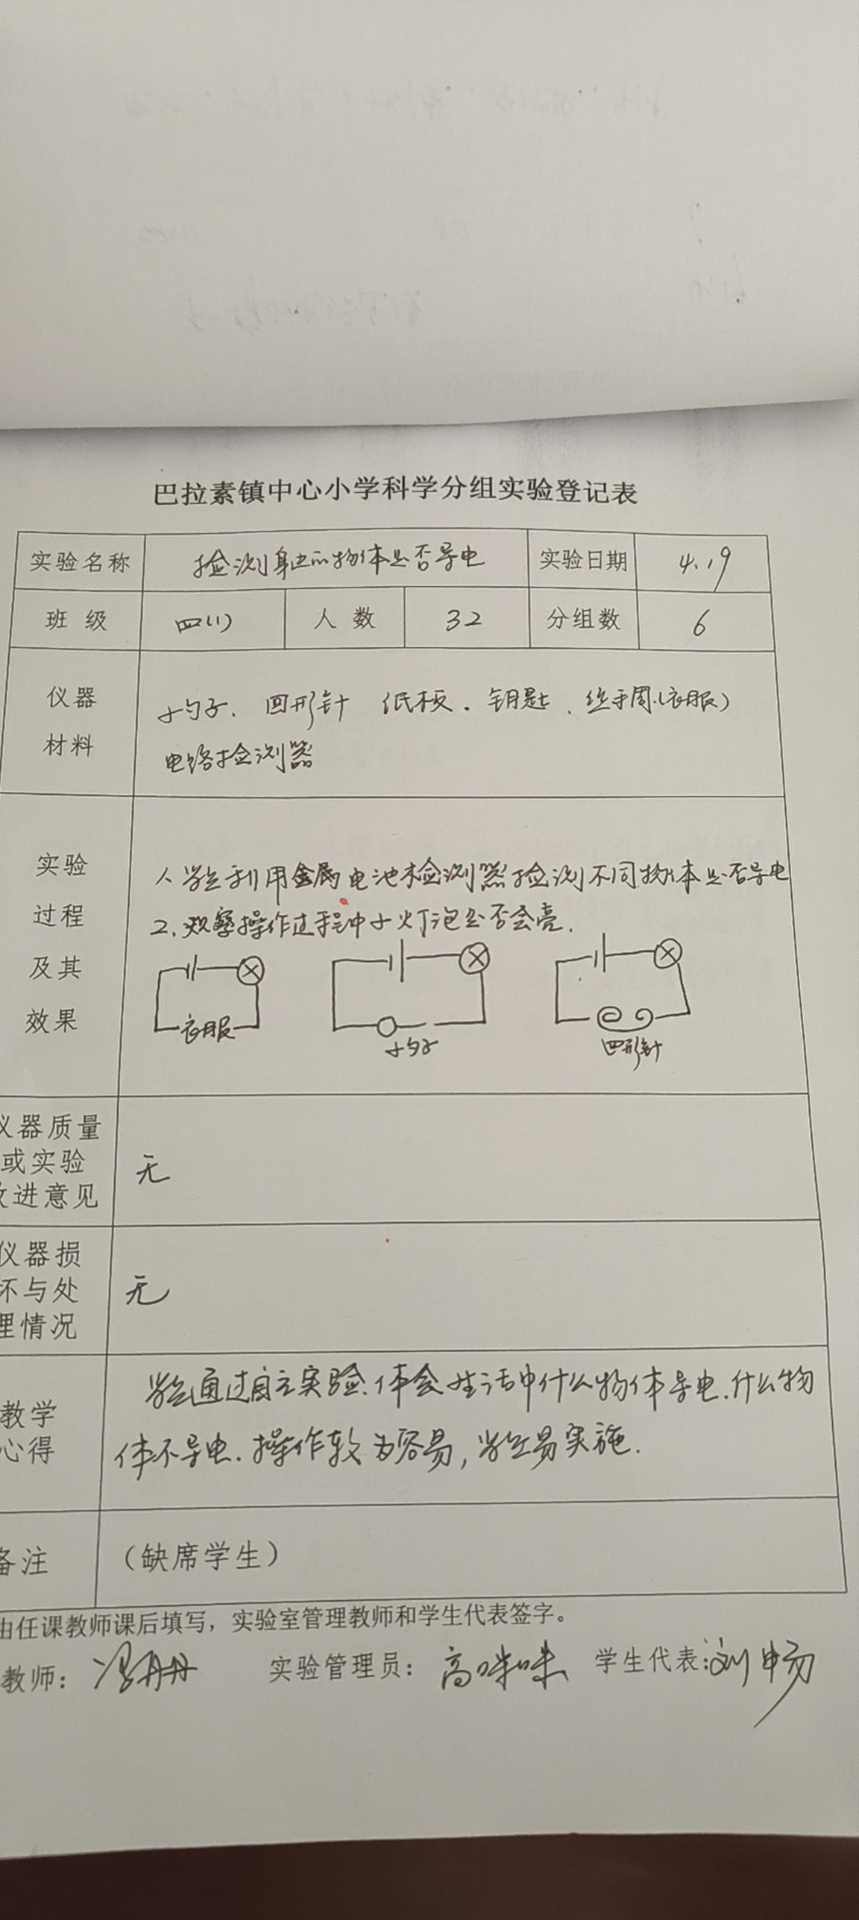 巴拉素镇中心小学科学分组实验登记表
实验名称 检测身边的物体是否导电 实验日期 4.19
班 级 四(1) 人 数 32 分组数 6
仪器
材料
小勺子、回形针 纸板、钥匙、(衣服)
电路检测器
实验
过程
及其
效果
1、学生利用金属电池检测器检测不同物体是否导电
2、观察操作过程中小灯泡是否会亮.
衣服 小勺子 回形针
仪器质量
或实验
改进意见
无
仪器损
坏与处
理情况
无
教学
心得
学生通过自主实验、体会生活中什么物体导电.什么物
体不导电.操作较为容易,学生易实施.
备注 （缺席学生）
由任课教师课后填写，实验室管理教师和学生代表签字。
教师： 冯丹丹 实验管理员： 高咪咪 学生代表： 刘畅